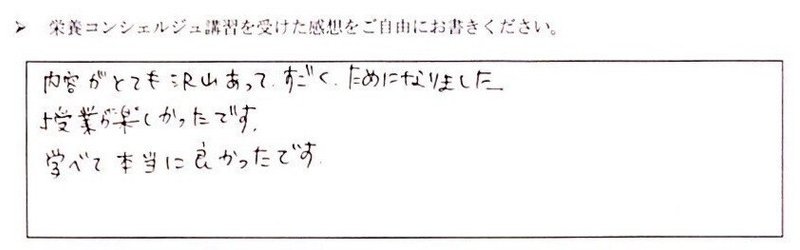 ➢ 栄養コンシェルジュ講習を受けた感想をご自由にお書きください。
内容がとても沢山あって、すごく、ためになりました
授業が楽しかったです。
学べて本当に良かったです.